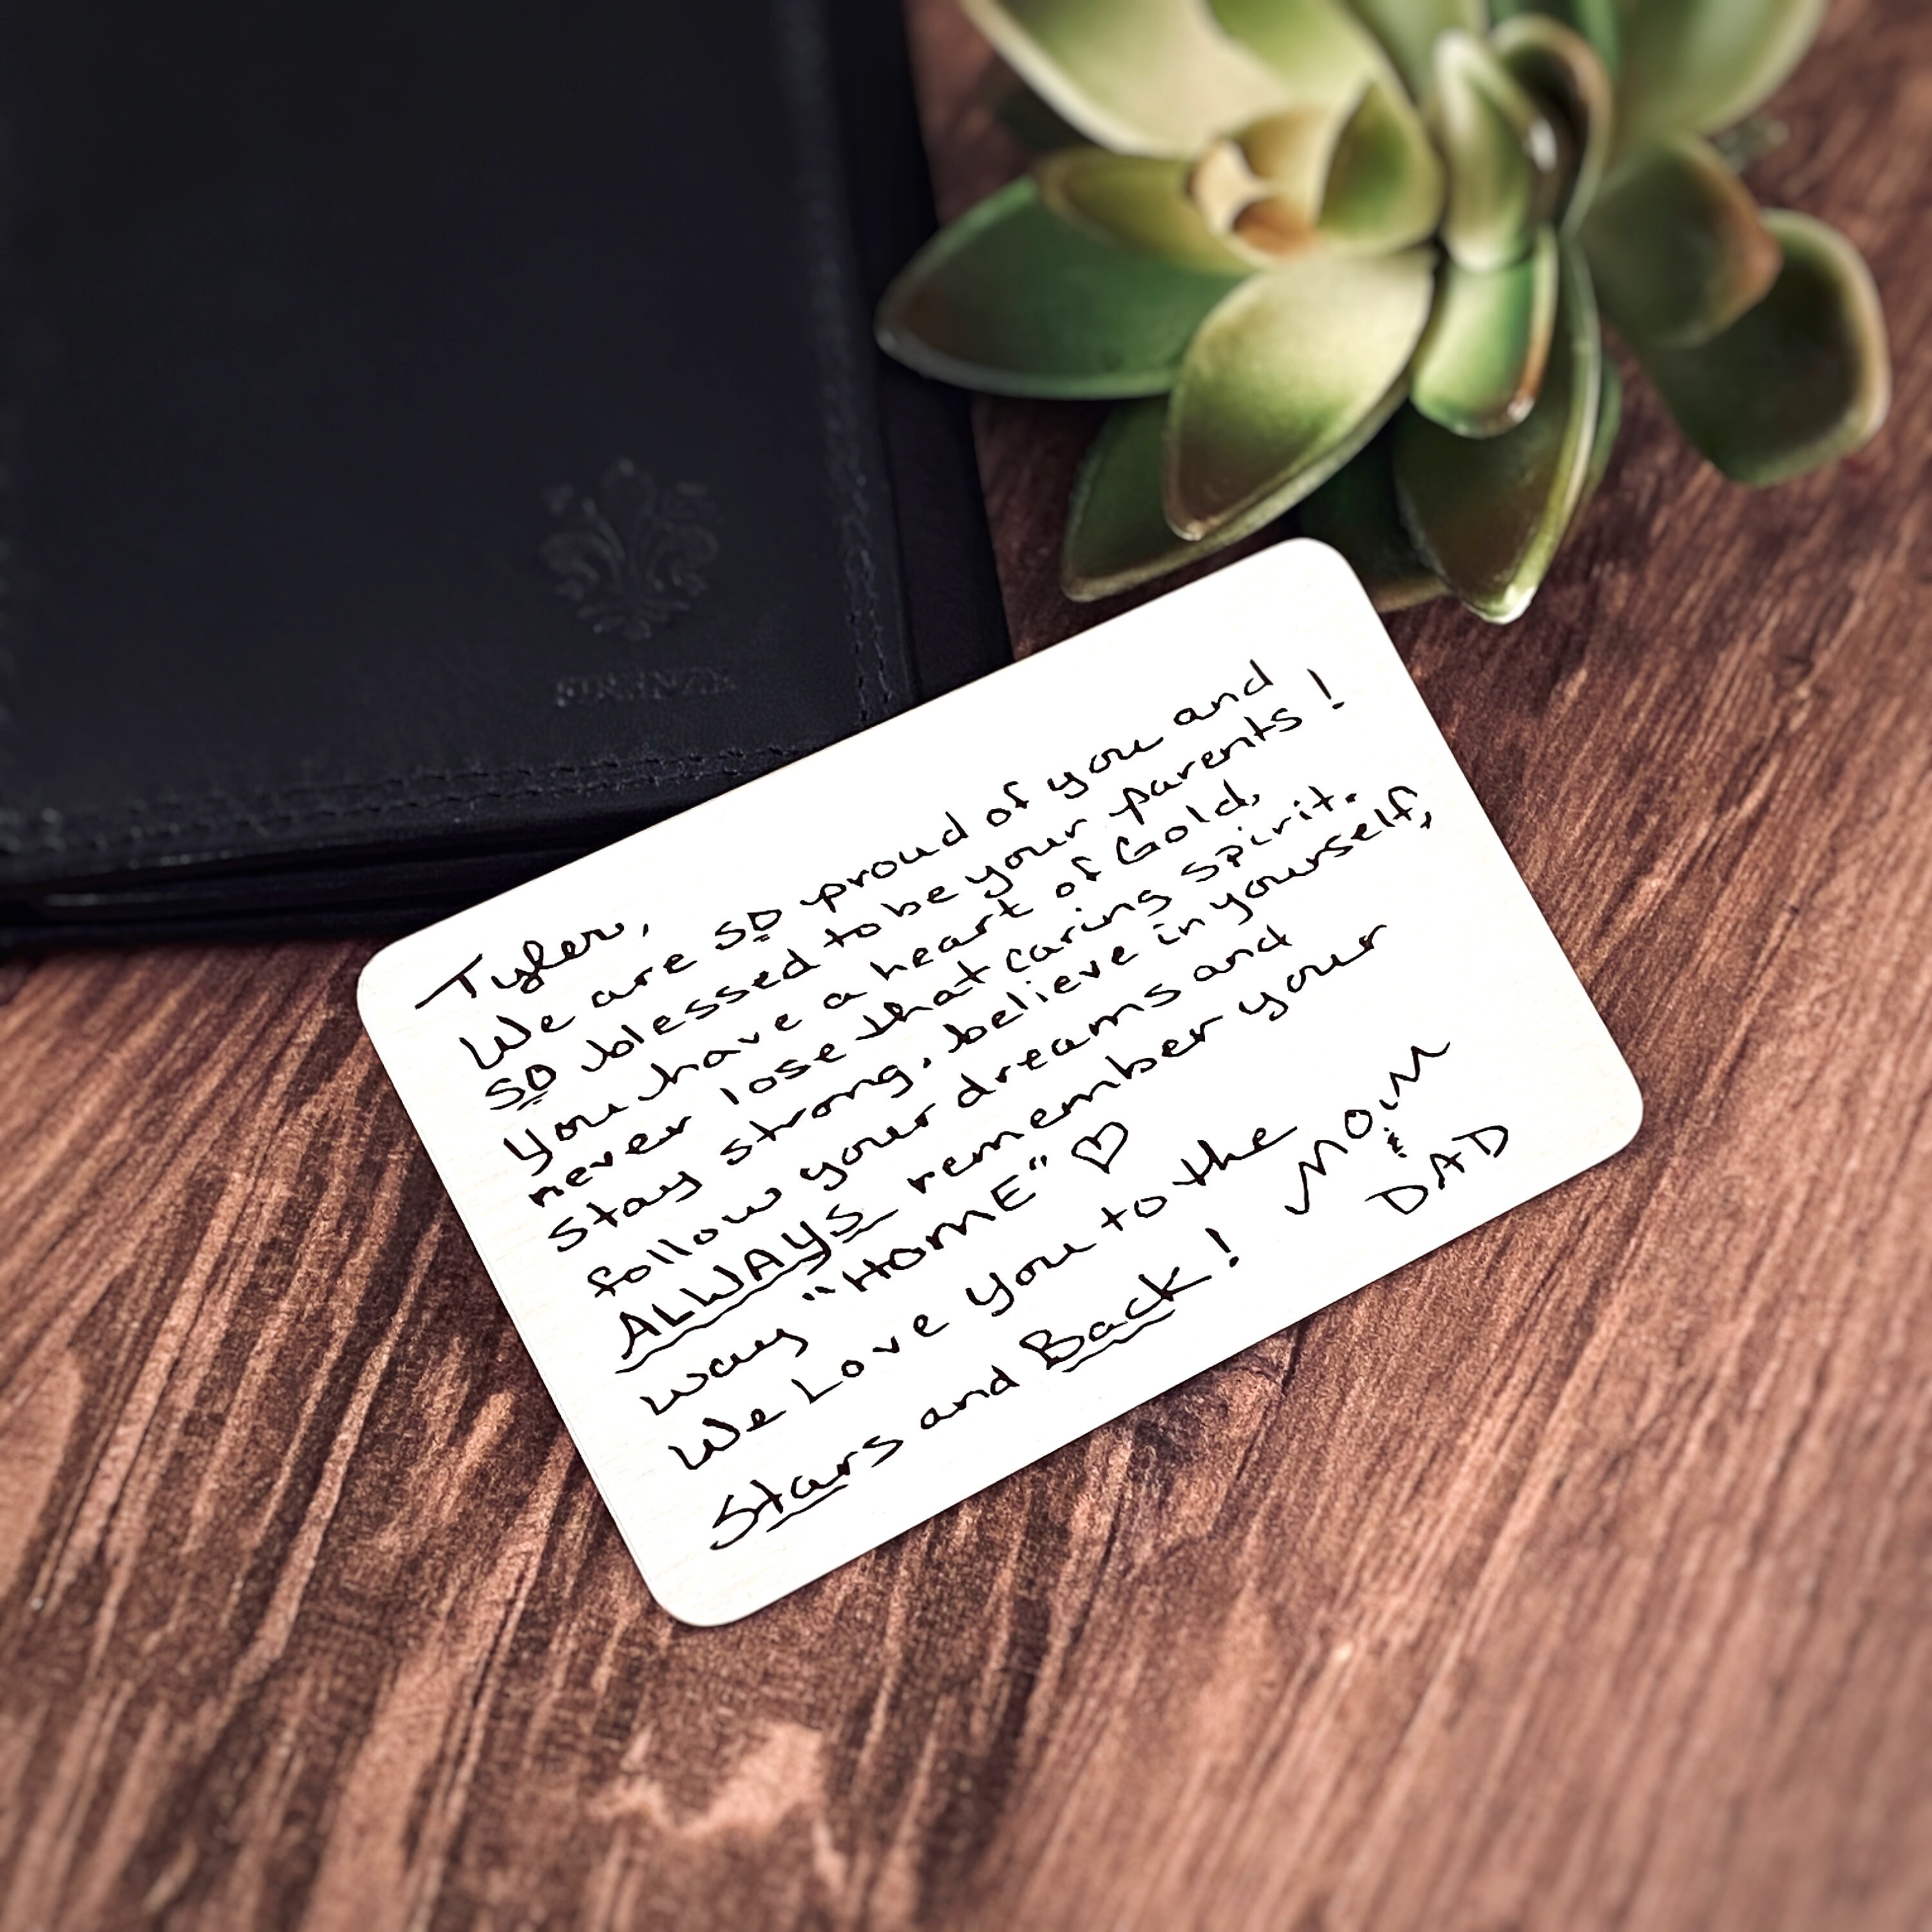 FIRENZE
Tyler,
We are so proud of you and
so blessed to be your parents!
You have a heart of Gold,
never lose that caring spirit.
Stay strong, believe in yourself,
follow your dreams and
ALWAYS remember your
way "HOME" ♡
We Love You to the
Stars and Back!
MOM
&
DAD